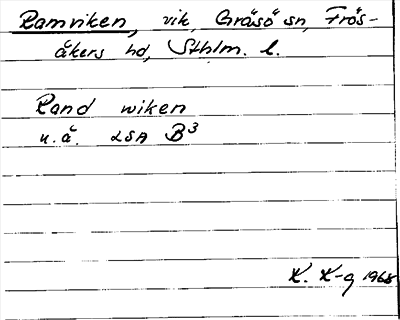 Ramviken, vik, Gräsö sn, Frös-
åkers hd, Sthlm. l.
Rand wiken
u.å. LSA B3
K. K-g 1968